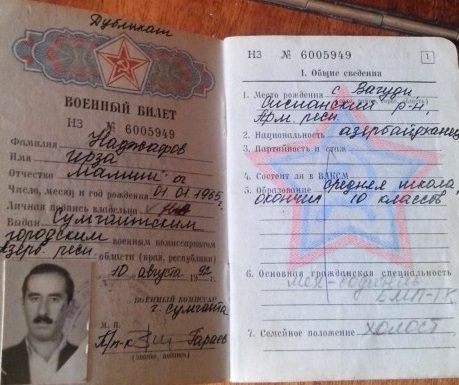 Дубликат
ВОЕННЫЙ БИЛЕТ
НЗ № 6005949
Фамилия Наджафов
Имя
Отчество оглы
Число, месяц и год рождения 01 01 1965
Личная подпись владельца
Выдан Сумгаитским
городским военным комиссариатом
Азерб. респ. области (края, республики)
10 августа 1992 г.
ВОЕННЫЙ КОМИССАР
г. Сумгаита
М. П.
П/п-к Гараев
(звание, подпись)
НЗ № 6005949
1
1. Общие сведения
1. Место рождения с. Вагуди
Сисианский р-н
Арм. респ.
2. Национальность азербайджанец
3. Партийность и стаж
4. Состоит ли в ВЛКСМ
5. Образование средняя школа,
окончил 10 классов
6. Основная гражданская специальность
БМП-1К
7. Семейное положение холост